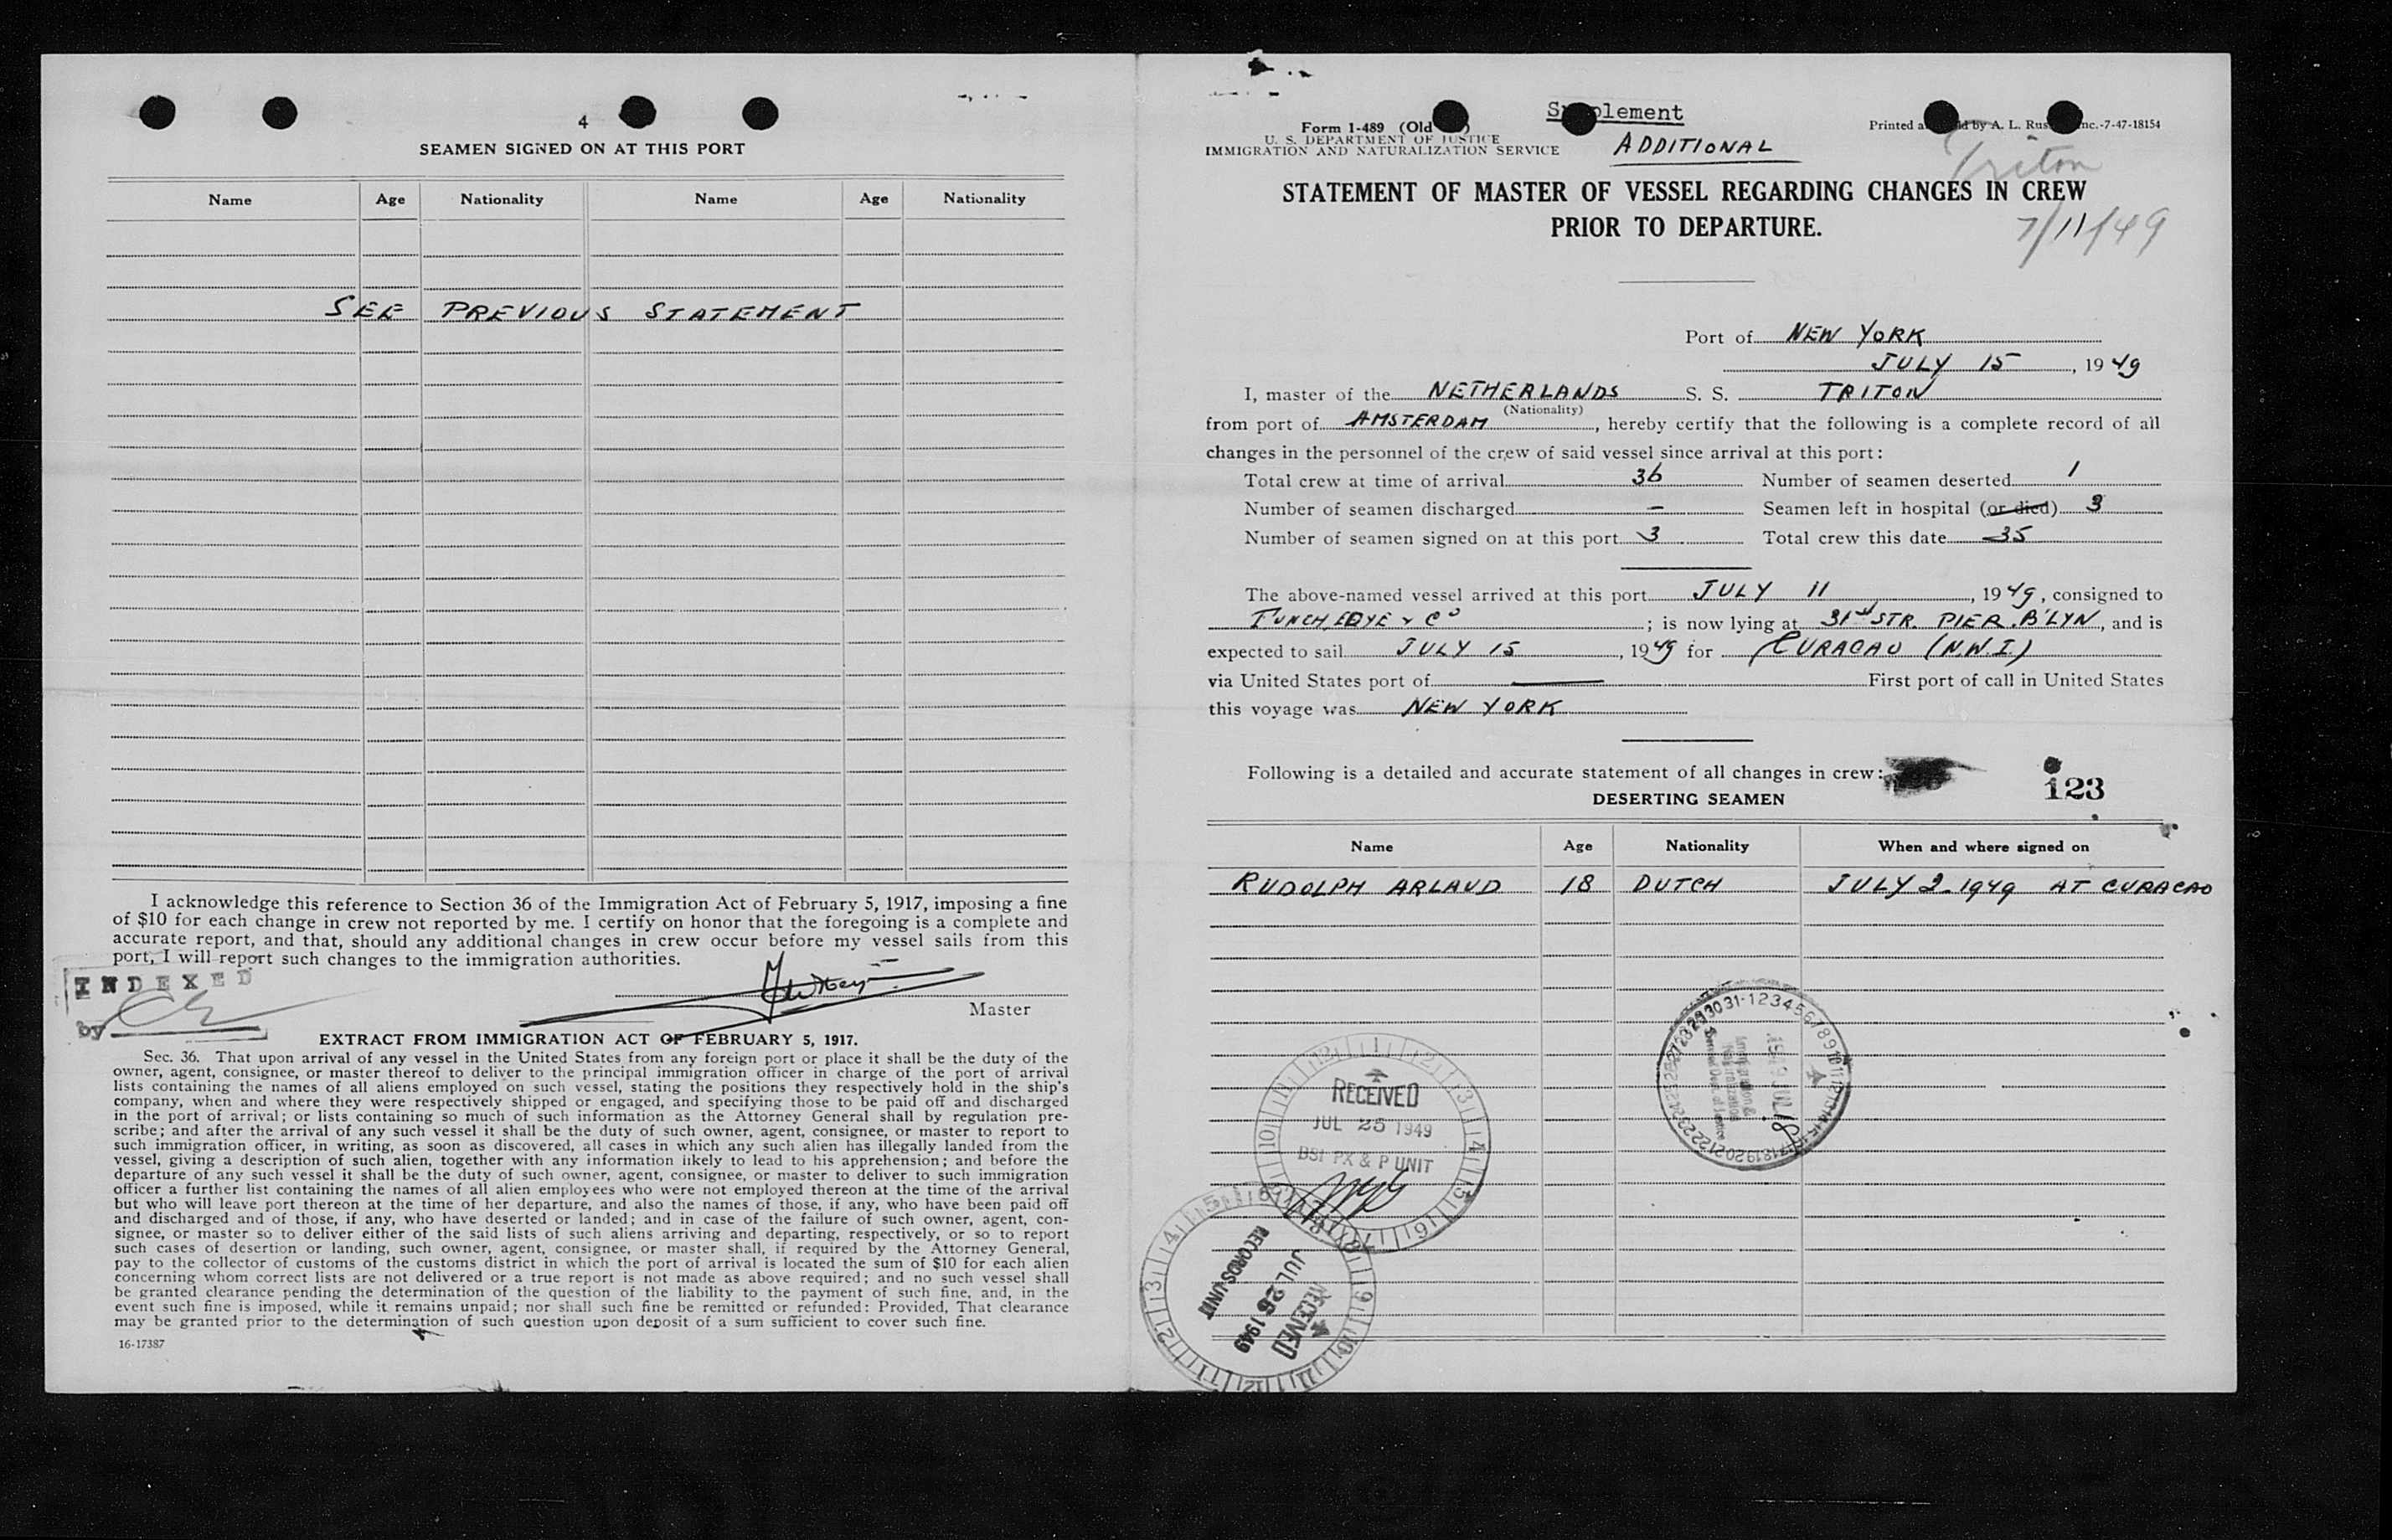 4
SEAMEN SIGNED ON AT THIS PORT
Name Age Nationality Name Age Nationality
SEE PREVIOUS STATEMENT
I acknowledge this reference to Section 36 of the Immigration Act of February 5, 1917, imposing a fine
of $10 for each change in crew not reported by me. I certify on honor that the foregoing is a complete and
accurate report, and that, should any additional changes in crew occur before my vessel sails from this
port, I will report such changes to the immigration authorities.
INDEXED
by
Master
EXTRACT FROM IMMIGRATION ACT OF FEBRUARY 5, 1917.
Sec. 36. That upon arrival of any vessel in the United States from any foreign port or place it shall be the duty of the
owner, agent, consignee, or master thereof to deliver to the principal immigration officer in charge of the port of arrival
lists containing the names of all aliens employed on such vessel, stating the positions they respectively hold in the ship's
company, when and where they were respectively shipped or engaged, and specifying those to be paid off and discharged
in the port of arrival; or lists containing so much of such information as the Attorney General shall by regulation pre-
scribe; and after the arrival of any such vessel it shall be the duty of such owner, agent, consignee, or master to report to
such immigration officer, in writing, as soon as discovered, all cases in which any such alien has illegally landed from the
vessel, giving a description of such alien, together with any information likely to lead to his apprehension; and before the
departure of any such vessel it shall be the duty of such owner, agent, consignee, or master to deliver to such immigration
officer a further list containing the names of all alien employees who were not employed thereon at the time of the arrival
but who will leave port thereon at the time of her departure, and also the names of those, if any, who have been paid off
and discharged and of those, if any, who have deserted or landed; and in case of the failure of such owner, agent, con-
signee, or master so to deliver either of the said lists of such aliens arriving and departing, respectively, or so to report
such cases of desertion or landing, such owner, agent, consignee, or master shall, if required by the Attorney General,
pay to the collector of customs of the customs district in which the port of arrival is located the sum of $10 for each alien
concerning whom correct lists are not delivered or a true report is not made as above required; and no such vessel shall
be granted clearance pending the determination of the question of the liability to the payment of such fine, and, in the
event such fine is imposed, while it remains unpaid; nor shall such fine be remitted or refunded: Provided, That clearance
may be granted prior to the determination of such question upon deposit of a sum sufficient to cover such fine.
16-17387
Supplement
Form 1-489 (Old
U. S. DEPARTMENT OF JUSTICE
IMMIGRATION AND NATURALIZATION SERVICE
ADDITIONAL
Printed by A. L. 7-47-18154
Triton
STATEMENT OF MASTER OF VESSEL REGARDING CHANGES IN CREW
PRIOR TO DEPARTURE.
7/11/49
Port of NEW YORK
JULY 15, 1949
I, master of the NETHERLANDS S. S. TRITON
(Nationality)
from port of AMSTERDAM, hereby certify that the following is a complete record of all
changes in the personnel of the crew of said vessel since arrival at this port:
Total crew at time of arrival 36 Number of seamen deserted 1
Number of seamen discharged — Seamen left in hospital (or died) 3
Number of seamen signed on at this port 3 Total crew this date 35
The above-named vessel arrived at this port JULY 11, 1949, consigned to
FUNCH, EDYE & Co; is now lying at 31st STR. PIER. B'LYN, and is
expected to sail JULY 15, 1949 for CURACAO (N.W.I.)
via United States port of — First port of call in United States
this voyage was NEW YORK
Following is a detailed and accurate statement of all changes in crew:
123
DESERTING SEAMEN
Name Age Nationality When and where signed on
RUDOLPH ARLAUD 18 DUTCH JULY 2 - 1949 AT CURACAO
RECEIVED
JUL 25 1949
BSI PX & P UNIT
RECEIVED
JUL 26 1949
RECORDS UNIT